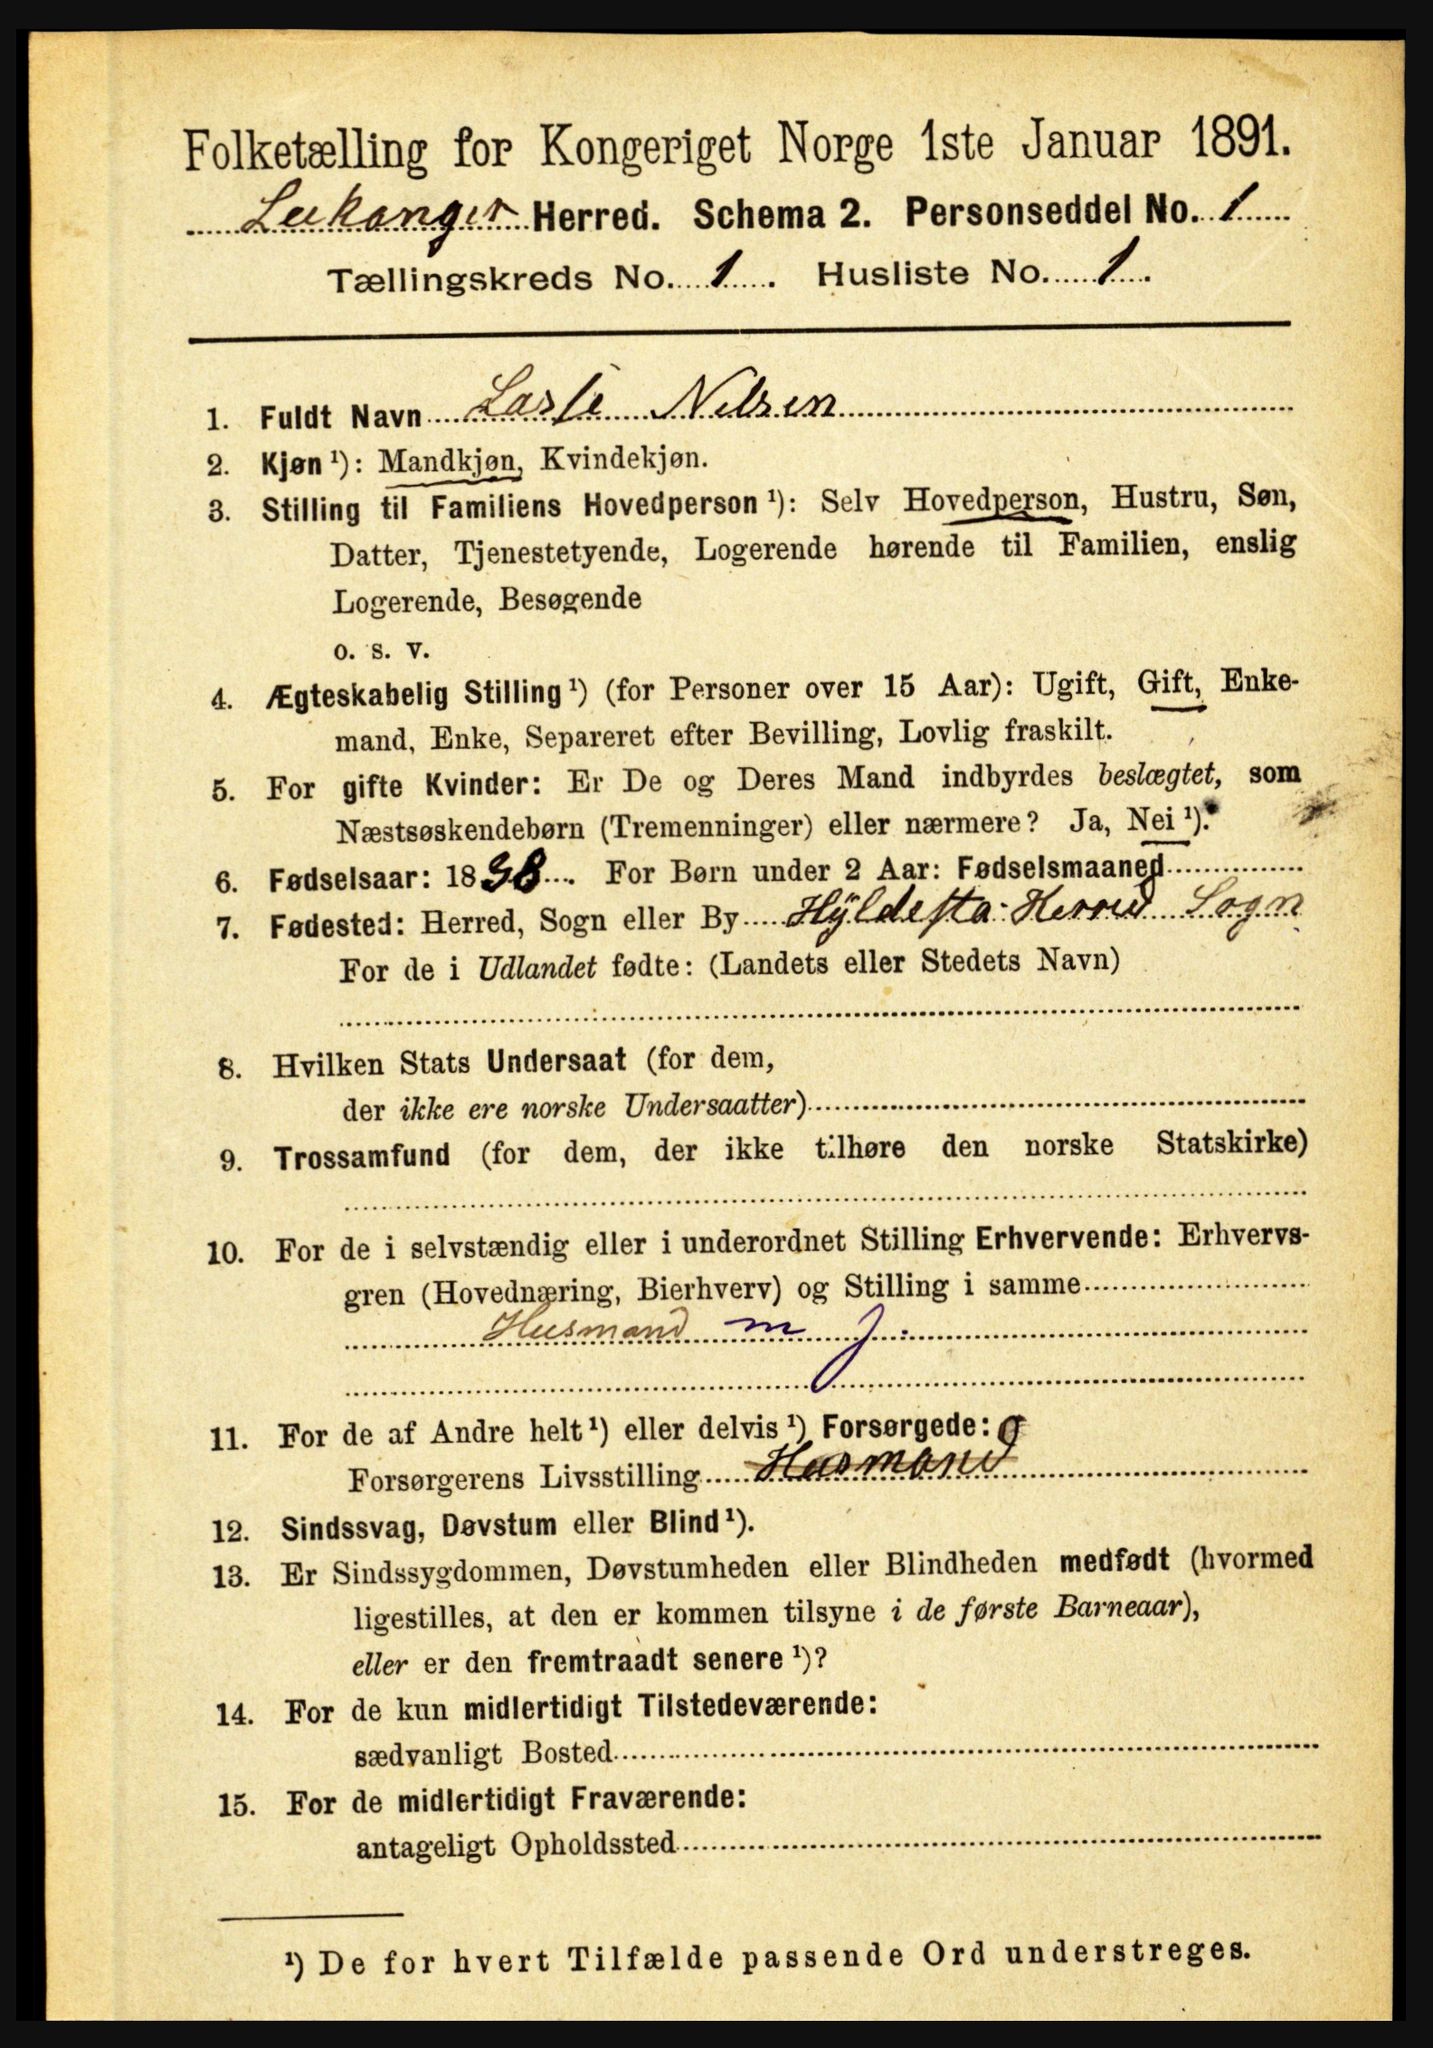 Folketælling for Kongeriget Norge 1ste Januar 1891.
Leikanger Herred. Schema 2. Personseddel No. 1
Tællingskreds No. 1. Husliste No. 1.
1. Fuldt Navn Nilsen
2. Kjøn ¹): Mandkjøn, Kvindekjøn.
3. Stilling til Familiens Hovedperson ¹): Selv Hovedperson, Hustru, Søn,
Datter, Tjenestetyende, Logerende hørende til Familien, enslig
Logerende, Besøgende
o. s. v.
4. Ægteskabelig Stilling ¹) (for Personer over 15 Aar): Ugift, Gift, Enke-
mand, Enke, Separeret efter Bevilling, Lovlig fraskilt.
5. For gifte Kvinder: Er De og Deres Mand indbyrdes beslægtet, som
Næstsøskendebørn (Tremenninger) eller nærmere? Ja, Nei ¹).
6. Fødselsaar: 1838. For Børn under 2 Aar: Fødselsmaaned
7. Fødested: Herred, Sogn eller By Hyldesta Herred Sogn
For de i Udlandet fødte: (Landets eller Stedets Navn)
8. Hvilken Stats Undersaat (for dem,
der ikke ere norske Undersaatter)
9. Trossamfund (for dem, der ikke tilhøre den norske Statskirke)
10. For de i selvstændig eller i underordnet Stilling Erhvervende: Erhvervs-
gren (Hovednæring, Bierhverv) og Stilling i samme
Husmand m j.
11. For de af Andre helt ¹) eller delvis ¹) Forsørgede:
Forsørgerens Livsstilling Husmand
12. Sindssvag, Døvstum eller Blind ¹).
13. Er Sindssygdommen, Døvstumheden eller Blindheden medfødt (hvormed
ligestilles, at den er kommen tilsyne i de første Barneaar),
eller er den fremtraadt senere ¹)?
14. For de kun midlertidigt Tilstedeværende:
sædvanligt Bosted
15. For de midlertidigt Fraværende:
antageligt Opholdssted
¹) De for hvert Tilfælde passende Ord understreges.